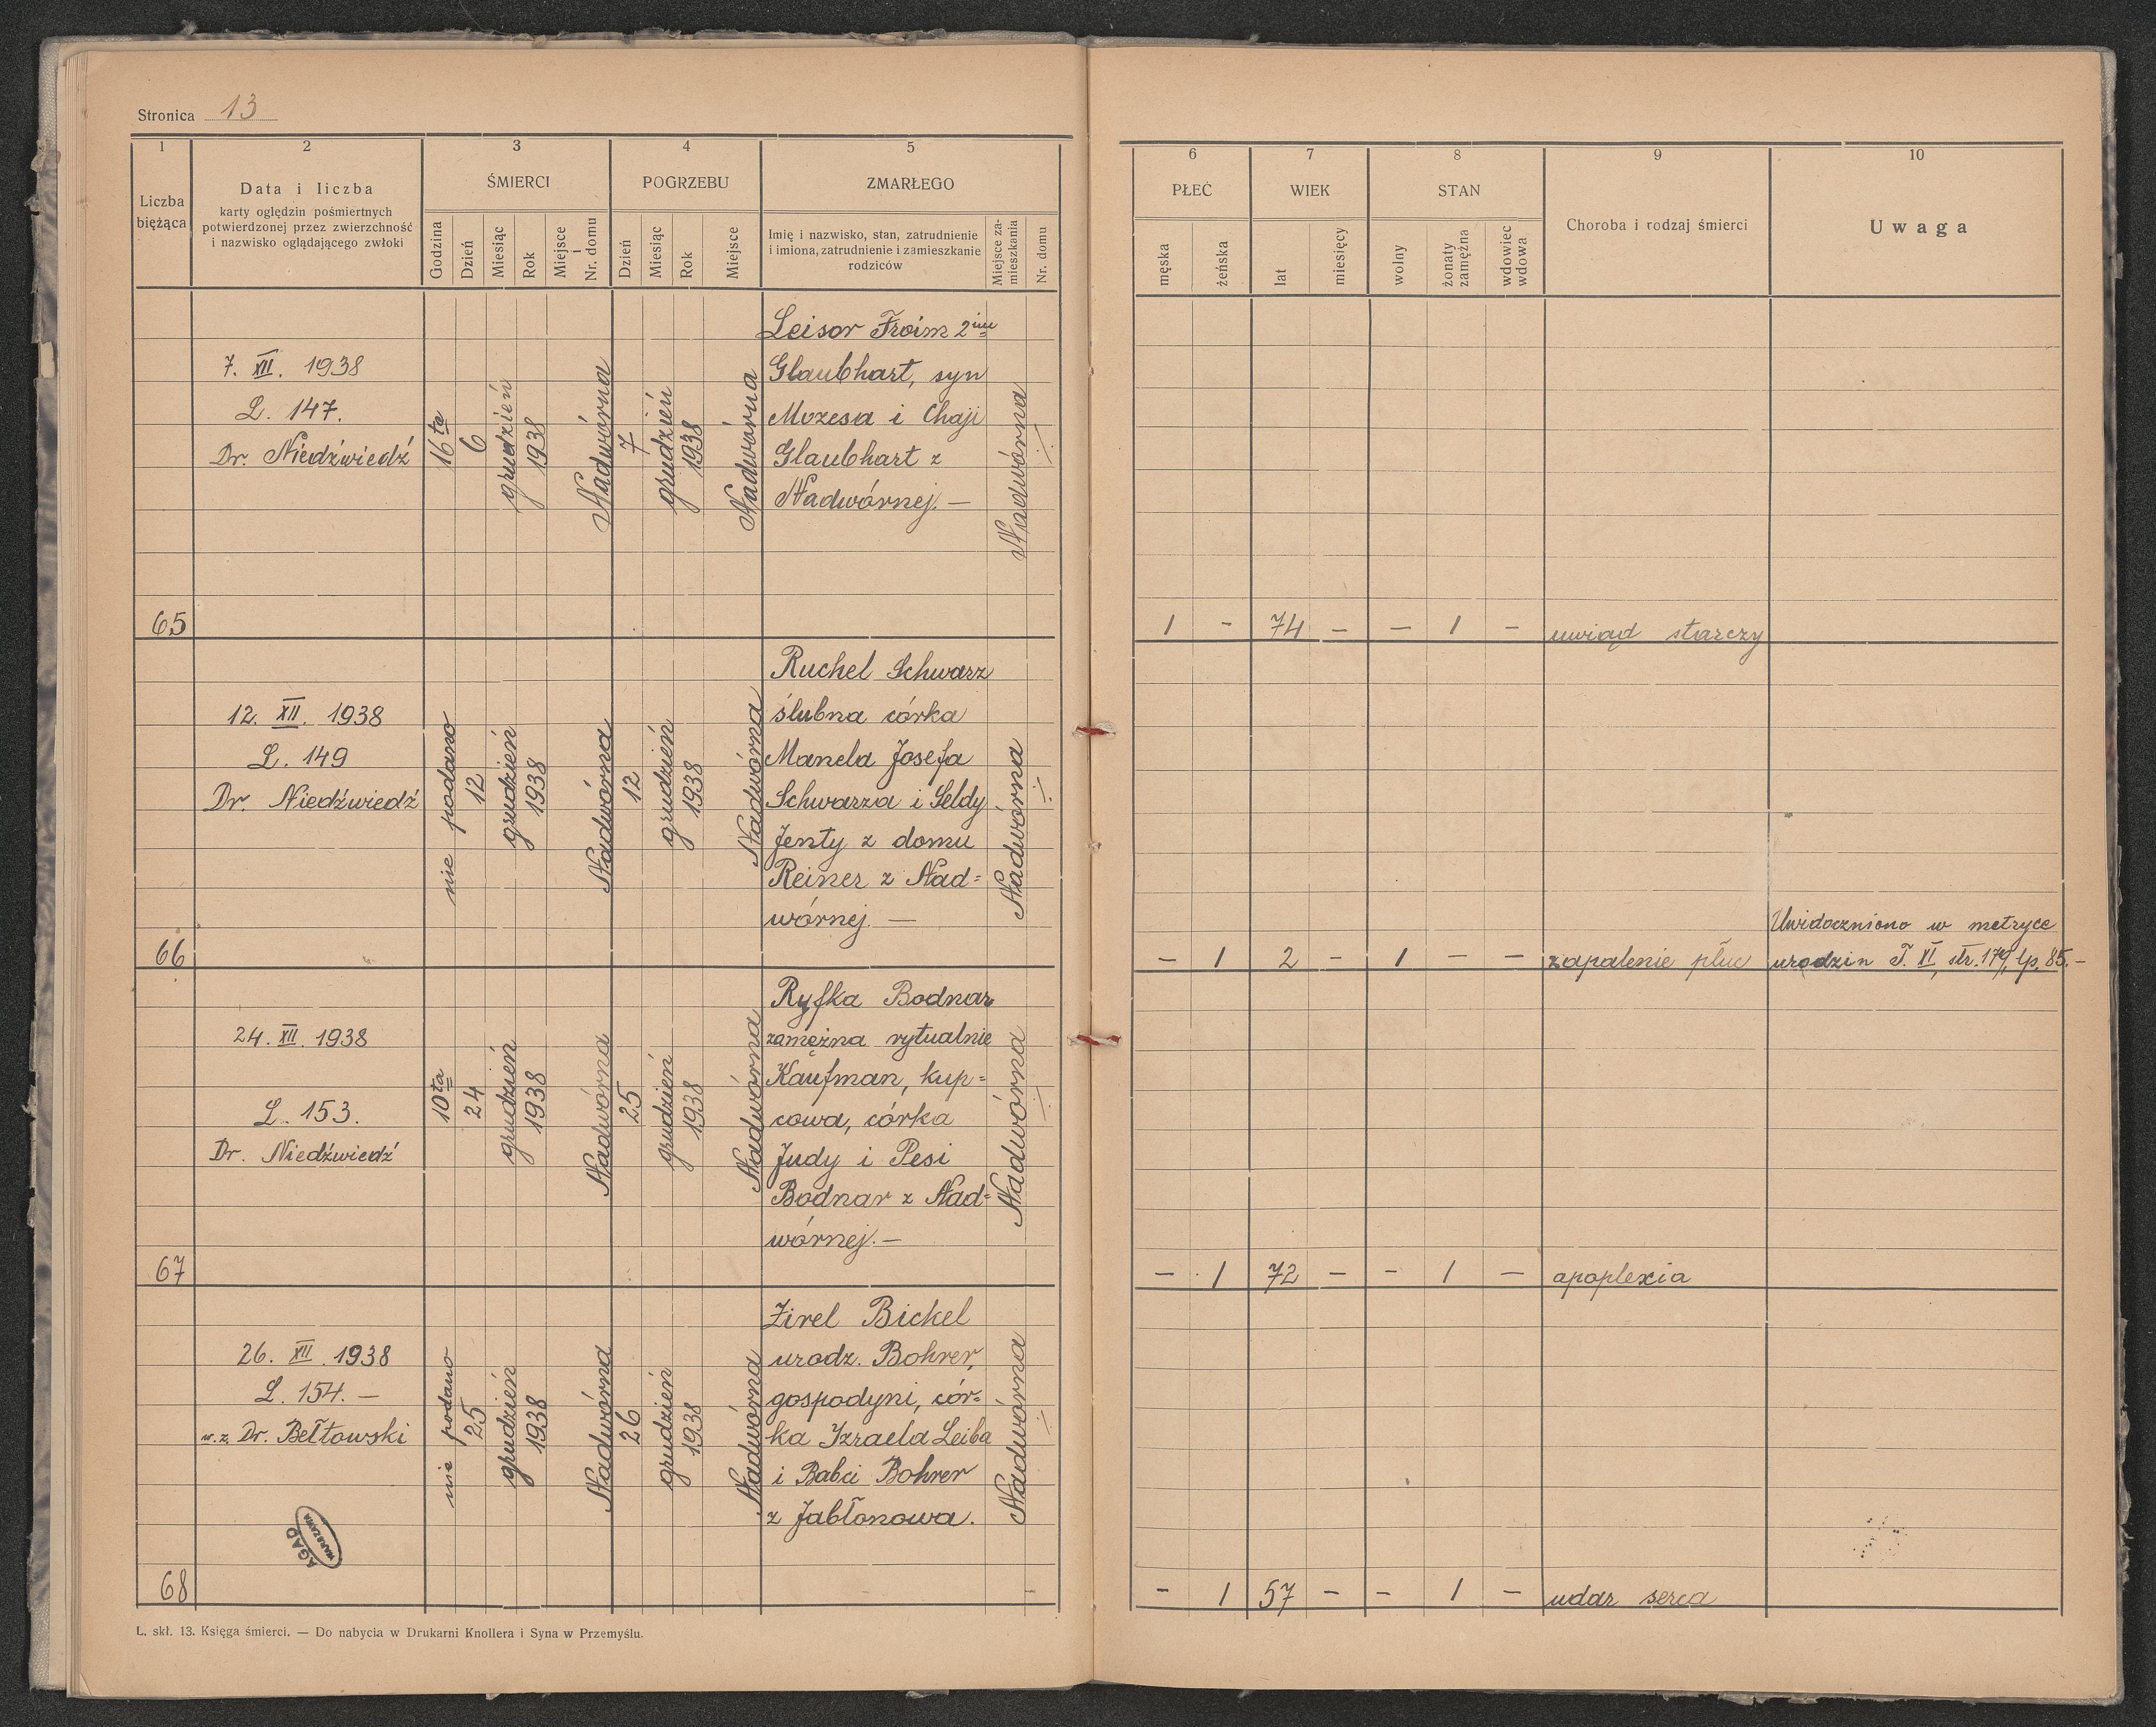 Stronica 13
1 2 3 4 5
Liczba bieżąca
Data i liczba
karty oględzin pośmiertnych
potwierdzonej przez zwierzchność
i nazwisko oglądającego zwłoki
ŚMIERCI
Godzina
Dzień
Miesiąc
Rok
Miejsce i Nr. domu
POGRZEBU
Dzień
Miesiąc
Rok
Miejsce
ZMARŁEGO
Imię i nazwisko, stan, zatrudnienie
i imiona, zatrudnienie i zamieszkanie
rodziców
Miejsce zamieszkania
Nr. domu
6 7 8 9 10
PŁEĆ
męska
żeńska
WIEK
lat
miesięcy
STAN
wolny
żonaty zamężna
wdowiec wdowa
Choroba i rodzaj śmierci
Uwaga
65
7. XII. 1938
L. 147.
Dr. Niedźwiedź
16ta
6
grudzień
1938
Nadwórna
7
grudzień
1938
Nadwórna
Leisor Froim 2im
Glaubhart, syn
Mozesa i Chaji
Glaubhart z
Nadwórnej. —
Nadwórna
1 - 74 - - 1 -
uwiąd starczy
66
12. XII. 1938
L. 149
Dr. Niedźwiedź
nie podano
12
grudzień
1938
Nadwórna
12
grudzień
1938
Nadwórna
Ruchel Schwarz
ślubna córka
Manela Josefa
Schwarza i Seldy
Jenty z domu
Reiner z Nad=
wórnej. —
Nadwórna
- 1 2 - 1 - -
zapalenie płuc
Uwidoczniono w metryce
urodzin T. XI, str. 179, lp. 85. -
67
24. XII. 1938
L. 153.
Dr. Niedźwiedź
10ta
24
grudzień
1938
Nadwórna
25
grudzień
1938
Nadwórna
Ryfka Bodnar
zamężna rytualnie
Kaufman, kup=
cowa, córka
Judy i Pesi
Bodnar z Nad=
wórnej. —
Nadwórna
- 1 72 - - 1 -
apoplexia
68
26. XII. 1938
L. 154. —
w.z. Dr. Bełtowski
nie podano
25
grudzień
1938
Nadwórna
26
grudzień
1938
Nadwórna
Zirel Bickel
urodz. Bohrer,
gospodyni, cór=
ka Izraela Leiba
i Babci Bohrer
z Jabłonowa.
Nadwórna
- 1 57 - - 1 -
udar serca
AGAD
WARSZAWA
L. skł. 13. Księga śmierci. — Do nabycia w Drukarni Knollera i Syna w Przemyślu.